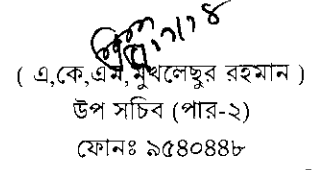 ( এ,কে,এম,মুখলেছুর রহমান )
উপ সচিব (পার-২)
ফোনঃ ৯৫৪০৪৪৮